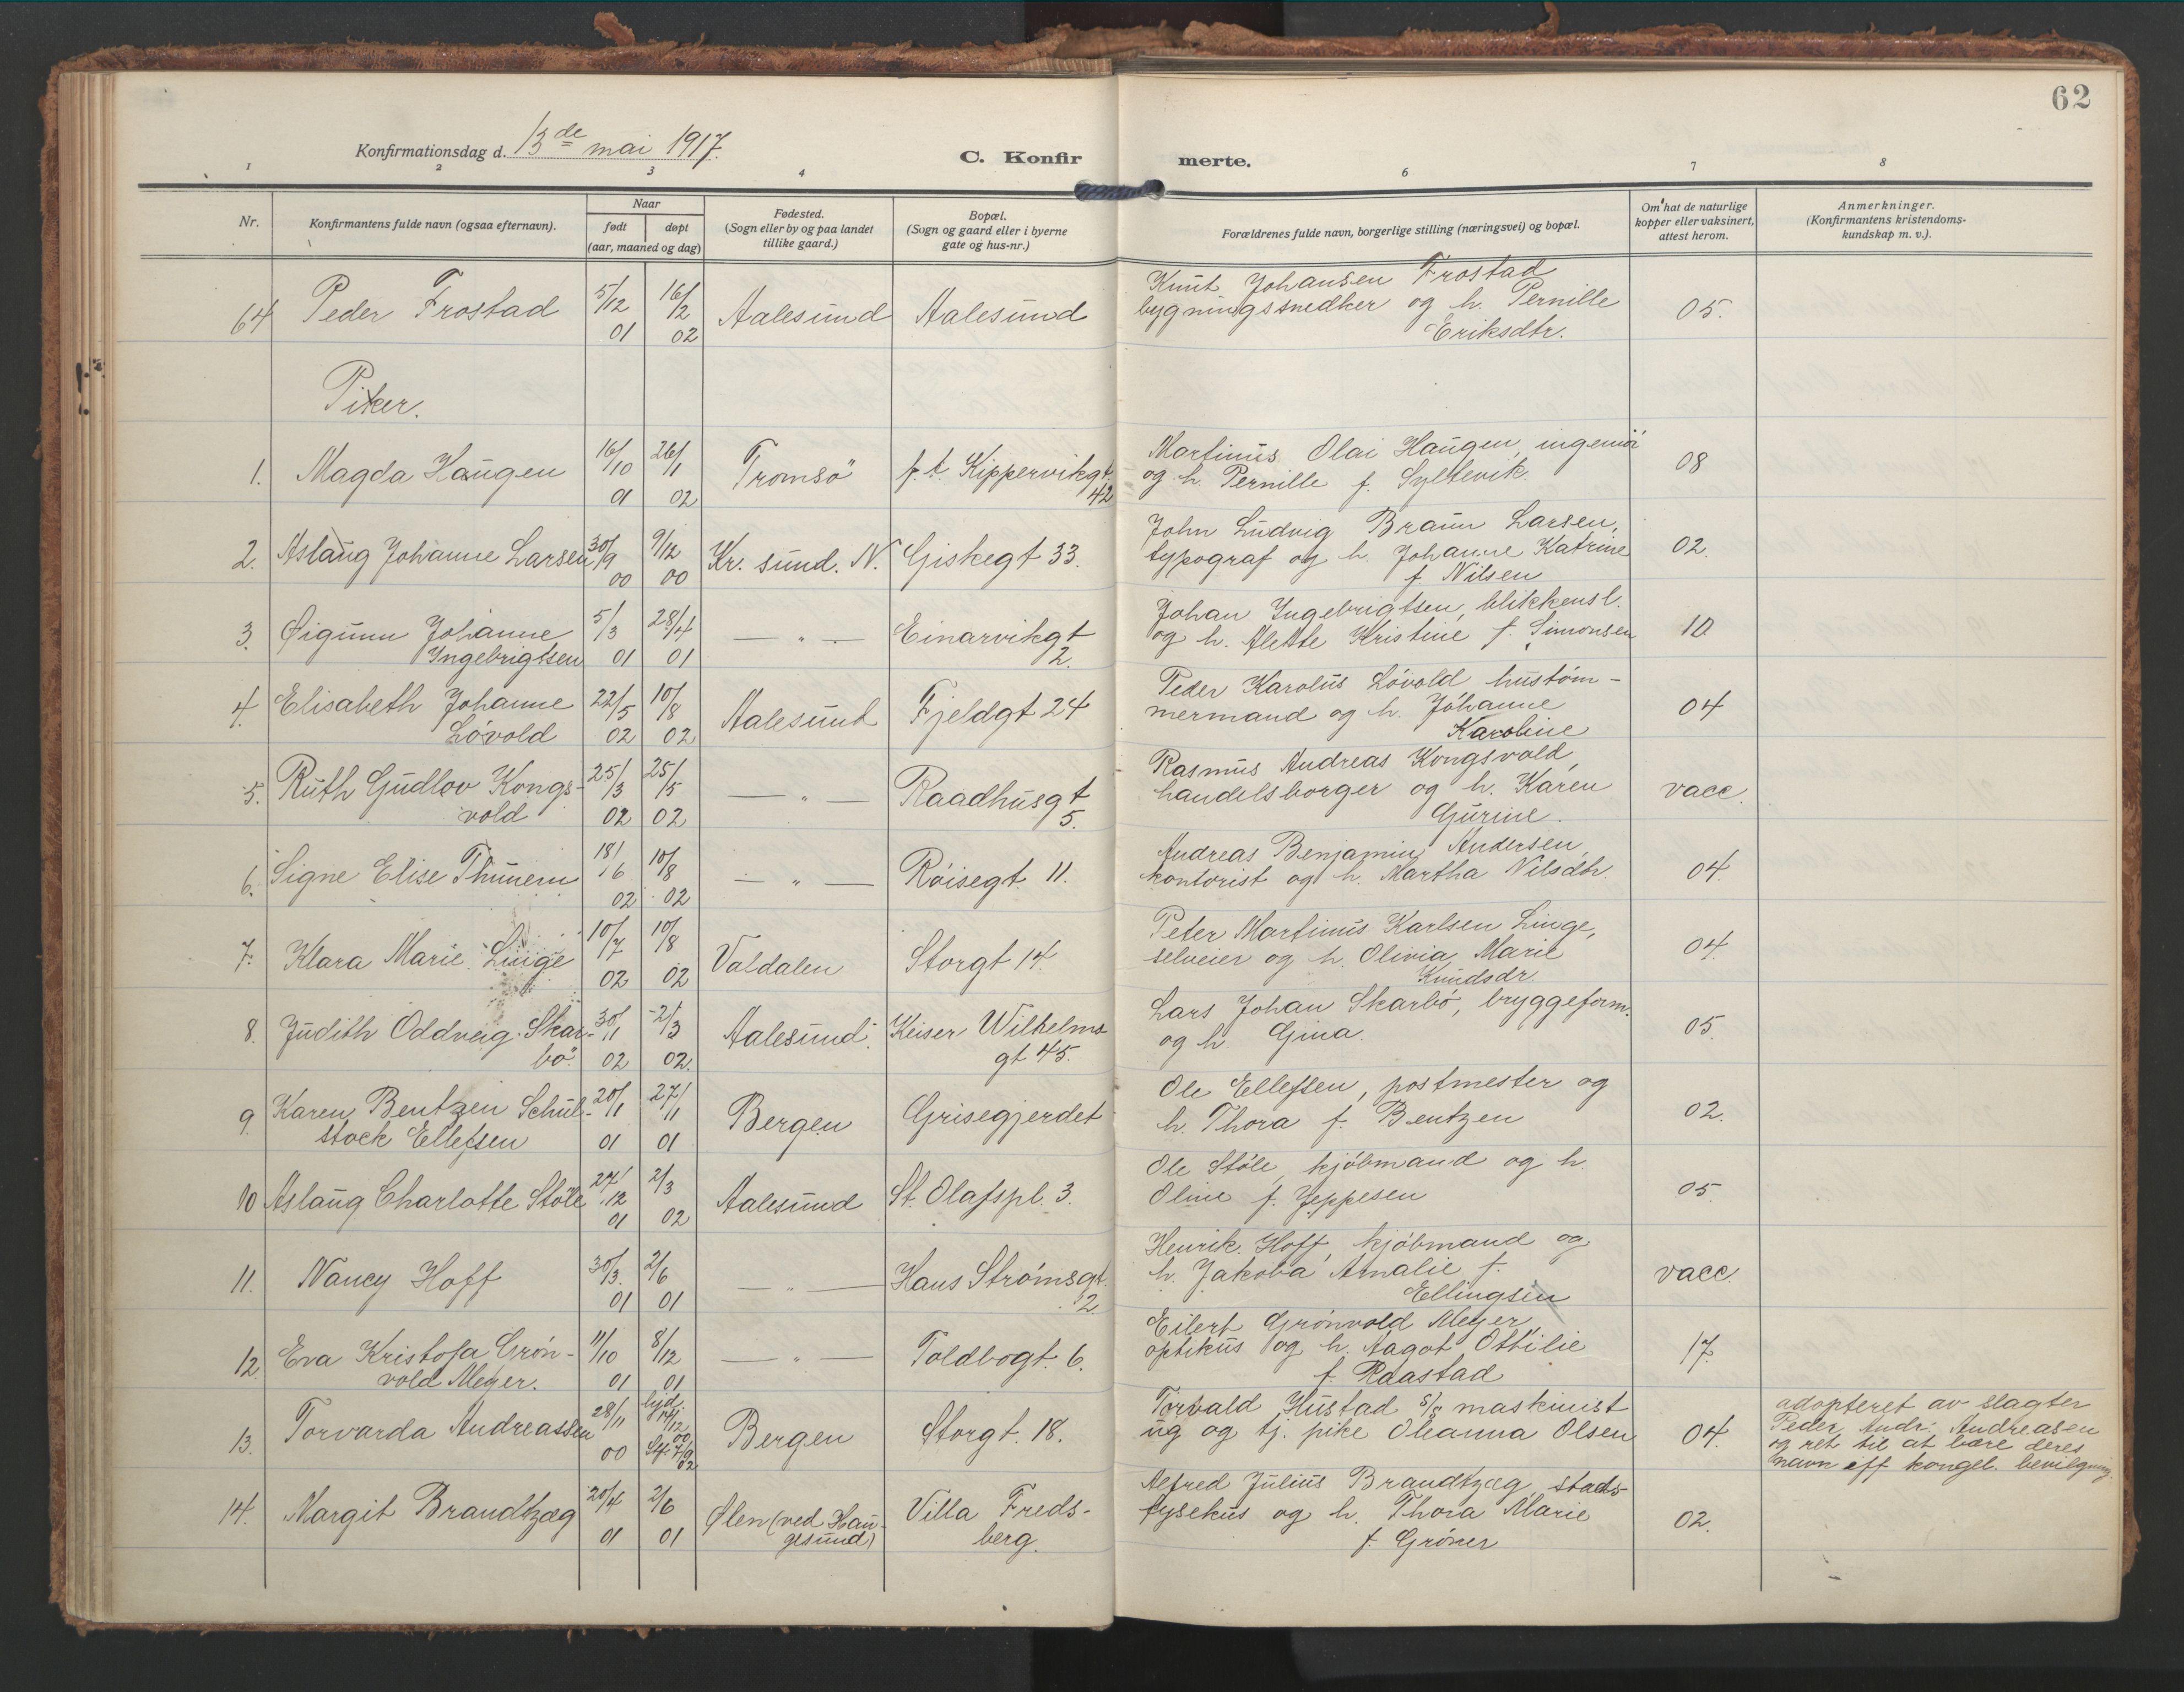 62
Konfirmationsdag d. 13de mai 1917.
C. Konfirmerte.
1 2 3 4 6 7 8
Nr.
Konfirmantens fulde navn (ogsaa efternavn).
Naar
født døpt
(aar, maaned og dag)
Fødested.
(Sogn eller by og paa landet
tillike gaard.)
Bopæl.
(Sogn og gaard eller i byerne
gate og hus-nr.)
Forældrenes fulde navn, borgerlige stilling (næringsvei) og bopæl.
Om hat de naturlige
kopper eller vaksinert,
attest herom.
Anmerkninger.
(Konfirmantens kristendoms-
kundskap m. v.).
64 Peder Frostad 5/12 01 16/2 02 Aalesund Aalesund
Knut Johansen Frostad
bygningssnedker og h. Pernille
Eriksdtr.
05.
Piker.
1. Magda Haugen 16/10 01 26/1 02 Tromsö p.t. Kippervikgt.
42
Martinus Olai Haugen, ingeniör
og h. Pernille f. Syltevik.
08
2. Aslaug Johanne Larsen 30/9 00 9/12 00 Kr. sund. N. Giskegt 33.
John Ludvig Braun Larsen,
typograf og h. Johanne Katrine
f. Nilsen
02.
3. Øigunn Johanne
Ingebrigtsen 5/3 01 28/4 01 — " — Einarvikgt
2.
Johan Ingebrigtsen, blikkensl.
og h. Alette Kristine f. Simonsen
10.
4. Elisabeth Johanne
Lóvold 22/5 02 10/8 02 Aalesund Fjeldgt 24
Peder Karolus Lóvold hustóm-
mermand og h. Jóhanne
Karoline
04
5. Ruth Gudlov Kongs-
vold 25/3 02 25/5 02 — " — Raadhusgt
5.
Rasmus Andreas Kongsvold,
handelsborger og h. Karen
Gurine.
vacc.
6. Signe Elise Thunem 18/6 02 10/8 02 — " — Róisegt. 11.
Andreas Benjamin Andersen,
kontorist og h. Martha Nilsdtr.
04.
7. Klara Marie Linge 10/7 02 10/8 02 Valdalen Storgt 14.
Peter Martinus Karlsen Linge,
selveier og h. Olivia Marie
Knudsdr.
04.
8. Judith Oddveig Skar-
bö 30/1 02 2/3 02. Aalesund. Keiser Wilhelms
gt 45.
Lars Johan Skarbó, bryggeform.
og h. Gina.
05.
9. Karen Bentzen Schul-
stock Ellefsen 20/1 01 27/1 01 Bergen Grisegjerdet
Ole Ellefsen, postmester og
h. Thora f. Bentzen
02.
10 Aslaug Charlotte Stóle 27/12 01 2/3 02 Aalesund St. Olafspl. 3.
Ole Stóle, kjóbmand og h.
Oline f. Jeppesen
05.
11. Nancy Hoff 30/3. 01 2/6 01 — " — Hans Strómsgt.
2.
Henrik Hoff, kjóbmand og
h. Jakoba Amalie f.
Ellingsen
vacc.
12. Eva Kristofa Grón-
vold Meyer. 11/10 01 8/12 01 — " — Toldbogt. 6.
Eilert Grónvold Meyer,
optikus og h. Aagot Ottilie
f. Raastad
17.
13. Torvarda Andreassen 28/11 00 14/12 00 7/9 02 Bergen Storgt. 18.
Torvald Hustad s/s maskinist
ug og tj. pike Oleanna Olsen
04.
adopteret av slagter
Peder Andr. Andreasen
og ret til at bære deres
navn eff kongel. bevilgning.
14. Margit Brandtzæg 20/4 01 2/6 01 Ølen (ved Hau-
gesund) Villa Freds-
berg.
Alfred Julius Brandtzæg, stads-
fysekus og h. Thora Marie
f. Gróner
02.